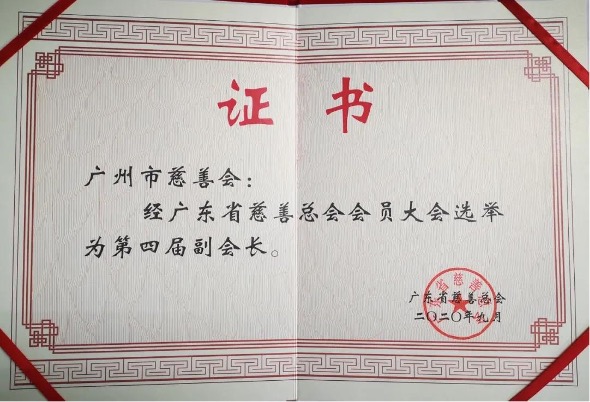 证书
广州市慈善会：
经广东省慈善总会会员大会选举
为第四届副会长。
广东省慈善总会
二〇二〇年九月